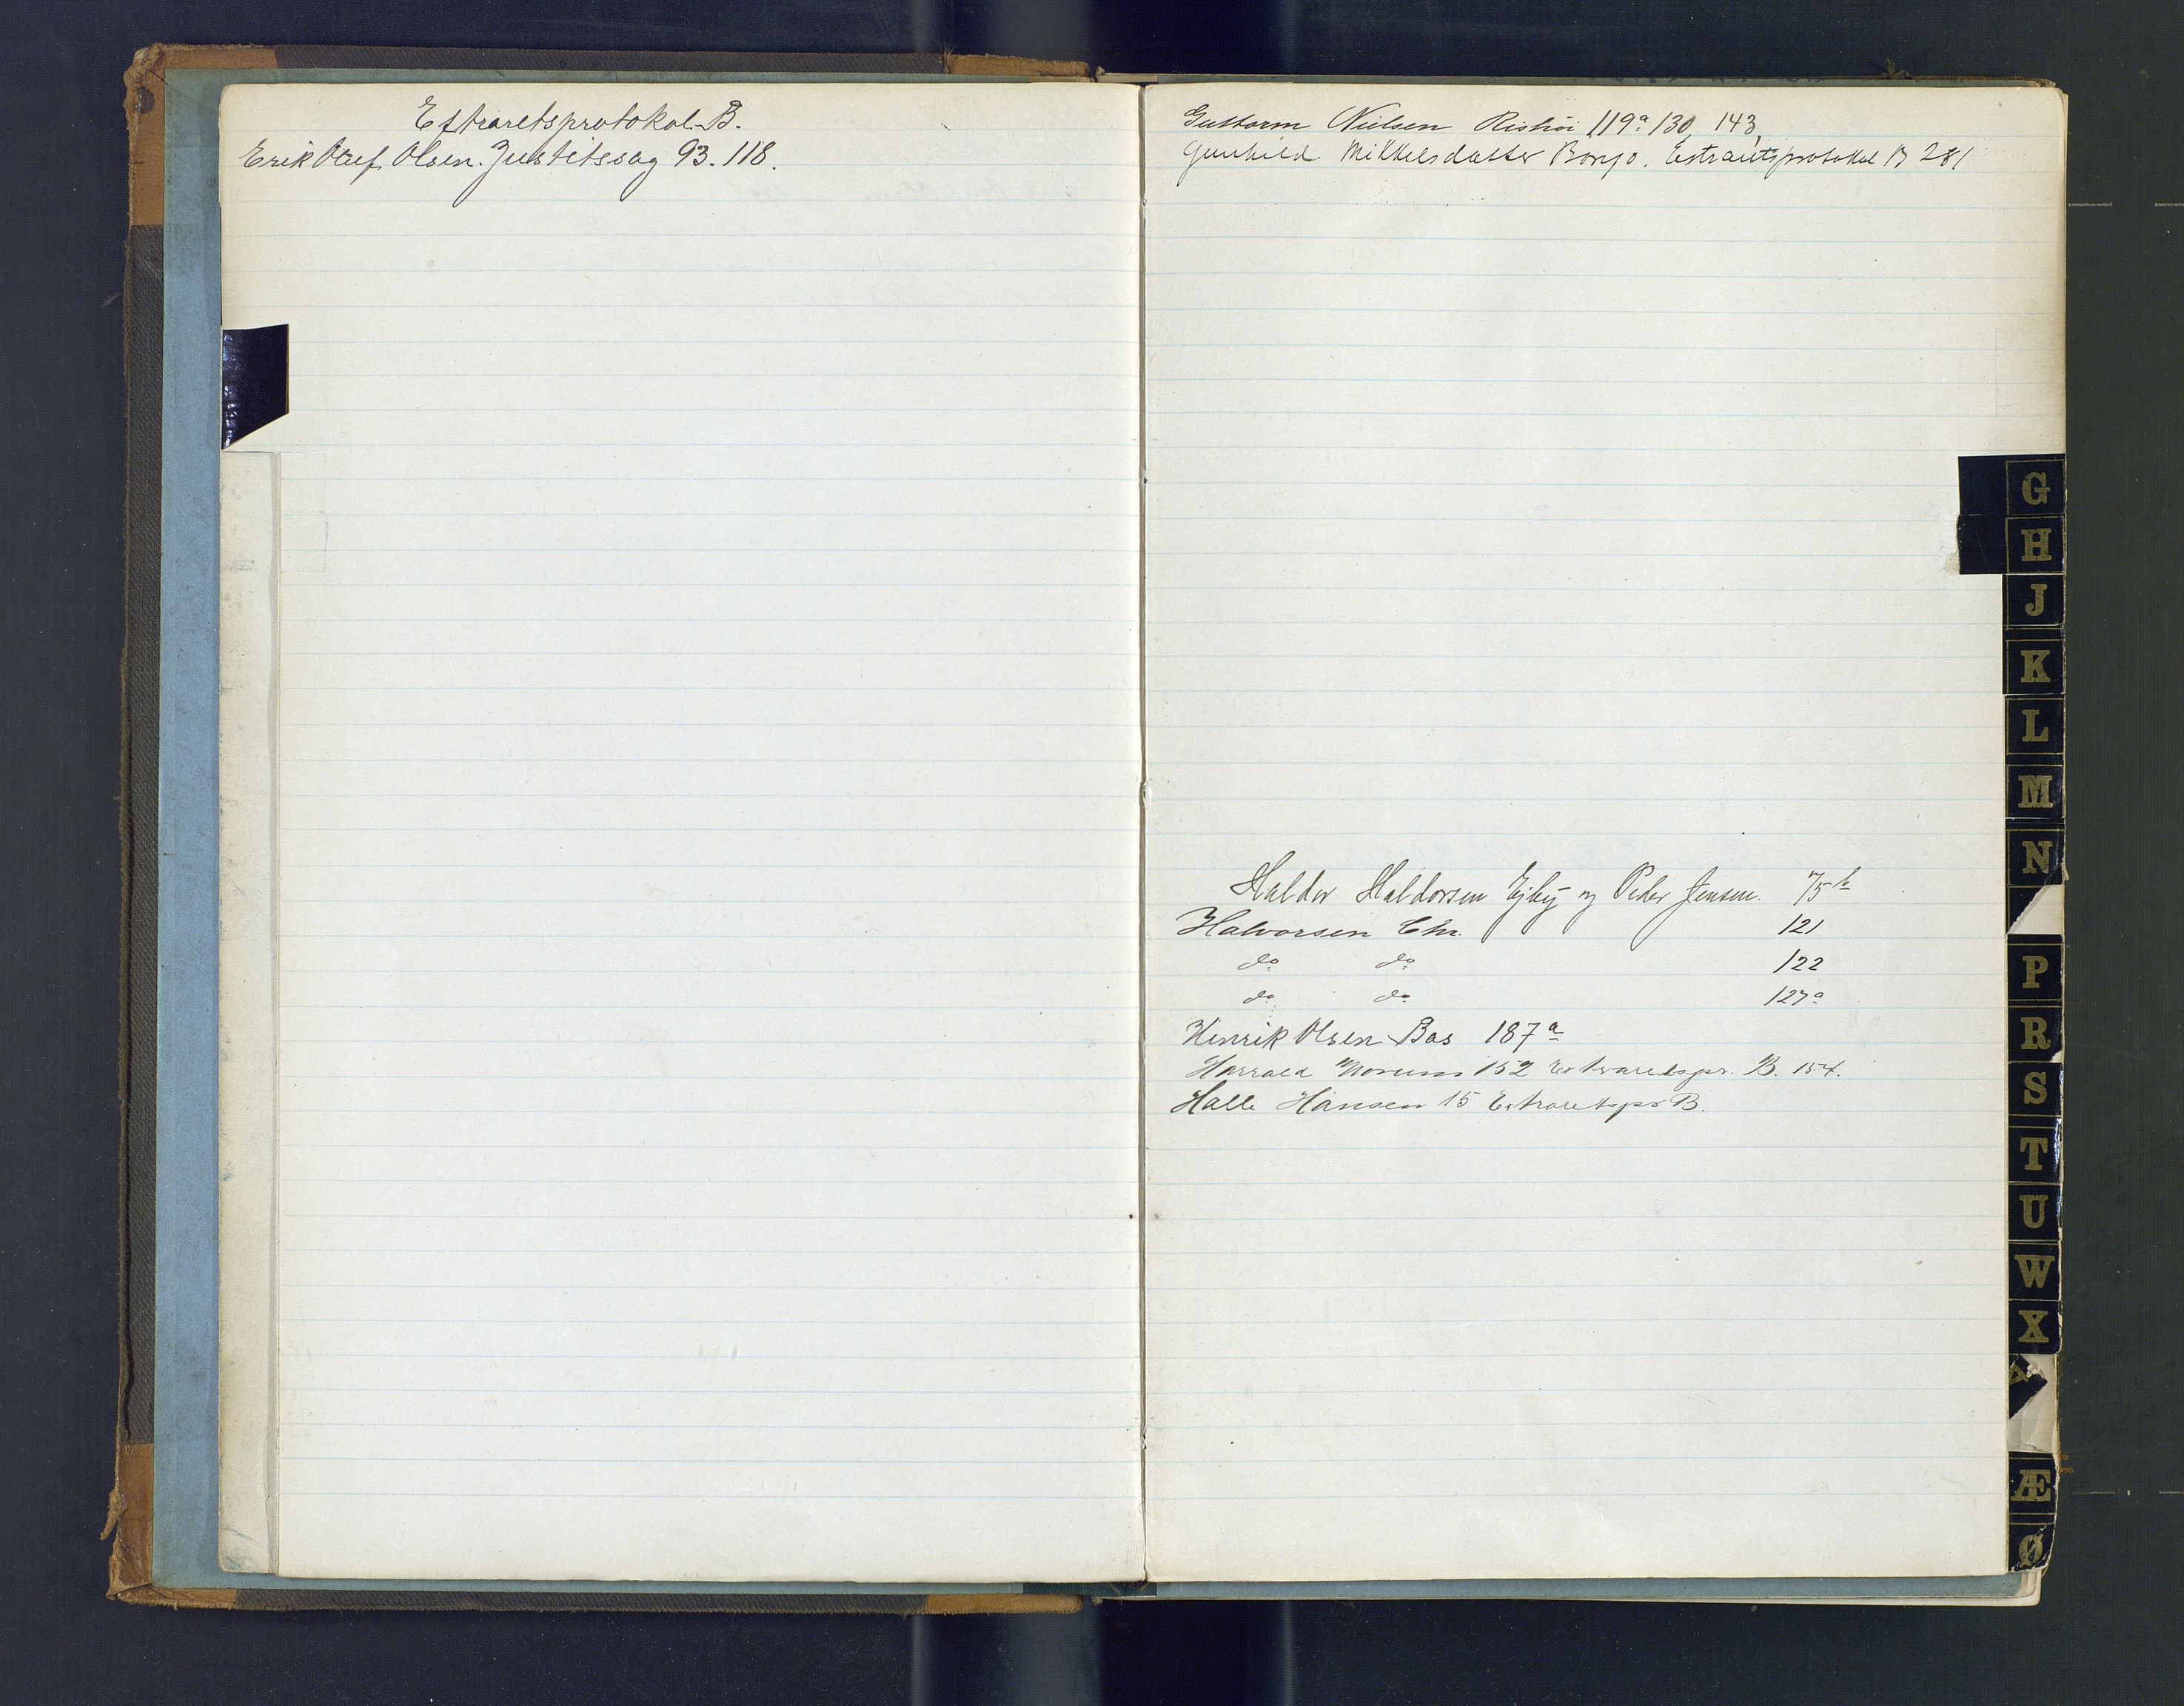 Extraretsprotokol B.
Erik Oluf Olsen. Justitssag 93. 118.
Guttorm Nielsen Rishöi 119a 130, 143,
Gunhild Mikkelsdatter Borgo. Extraretsprotokol B 281
Haldor Haldorsen Ejby og Peder Jensen. 75b
Halvorsen Chr. 121
do do 122
do do 127a
Henrik Olsen Bas 187a
Harrald Norum 152 Extraretspr. B. 154.
Halle Hansen 15 Extraretspr B.
G
H
J
K
L
M
N
P
R
S
T
U
W
X
Y
Æ
Ø